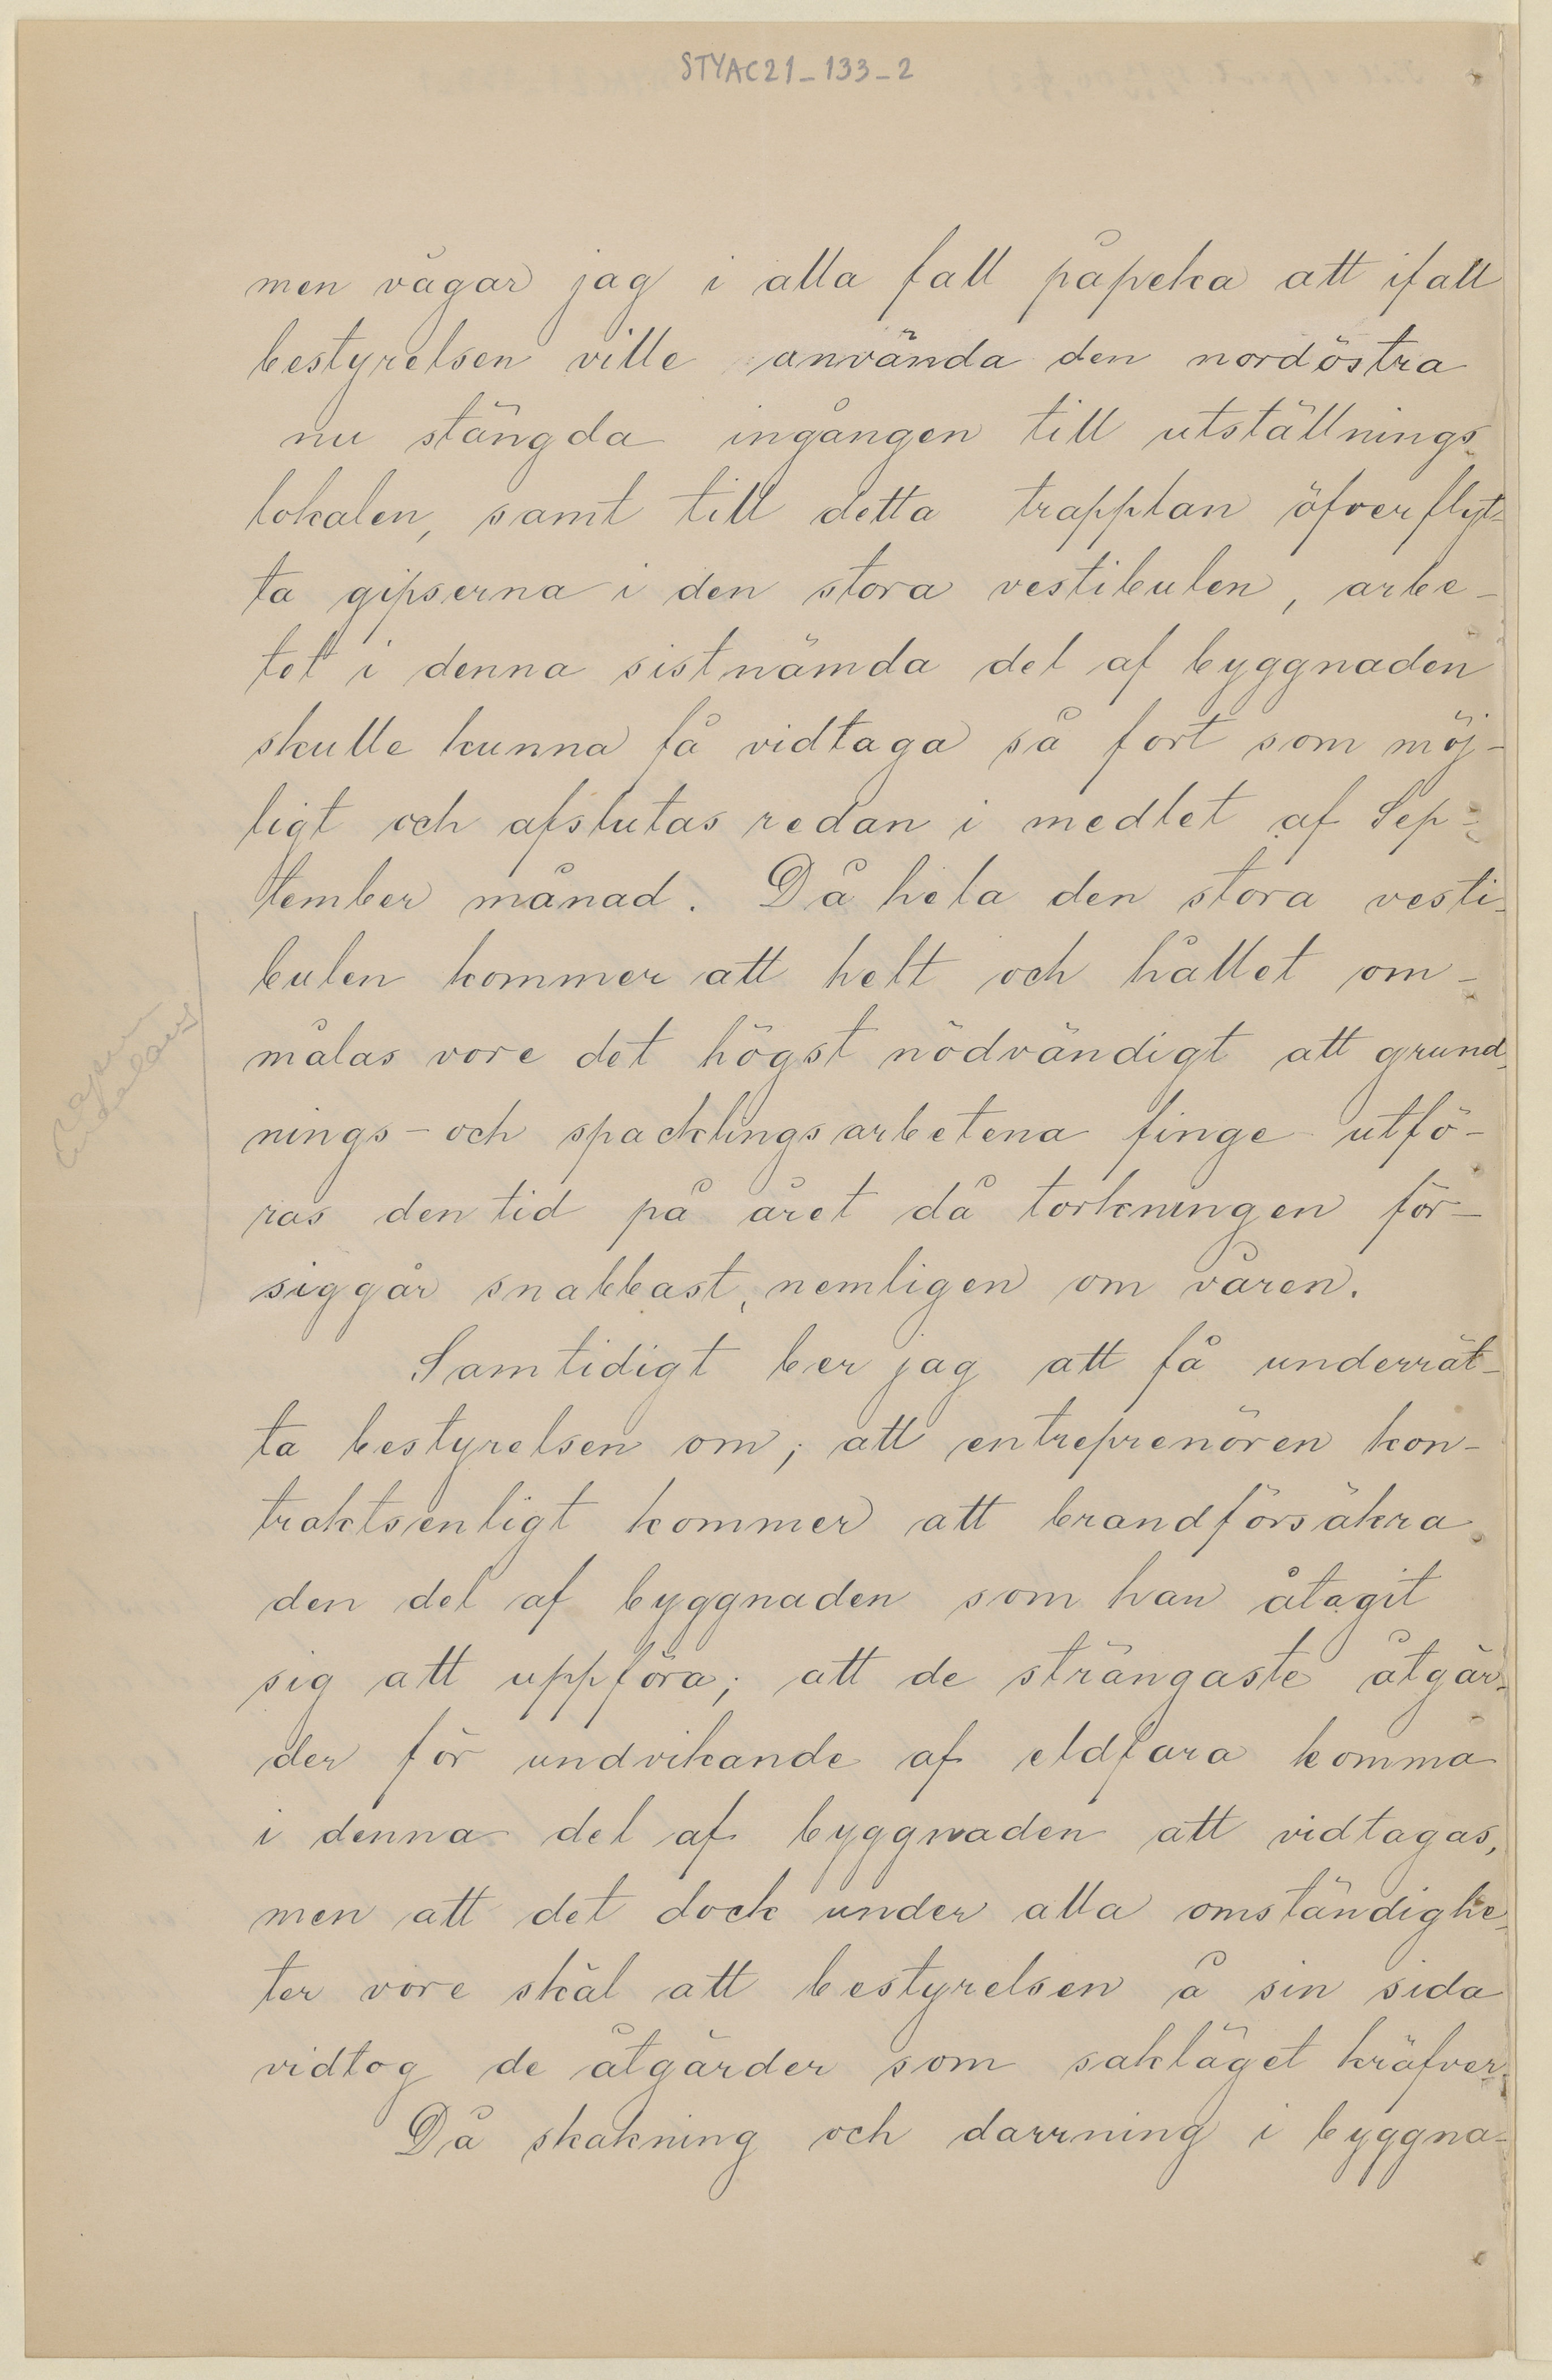 STYAC21_133_2
men vågar jag i alla fall påpeka att ifall
bestyrelsen ville använda den nordöstra
nu stängda ingången till utställnings-
lokalen, samt till detta trapplan öfverflyt-
ta gipserna i den stora vestibulen, arbe-
tet i denna sistnämda del af byggnaden
skulle kunna få vidtaga så fort som möj-
ligt och afslutas redan i medlet af Sep-
tember månad. Då hela den stora vesti-
bulen kommer att helt och hållet om-
målas vore det högst nödvändigt att grund-
nings- och spacklingsarbetena finge utfö-
ras den tid på året då torkningen för-
siggår snabbast, nemligen om våren.
Samtidigt ber jag att få underrät-
ta bestyrelsen om; att entreprenören kon-
traktsenligt kommer att brandförsäkra
den del af byggnaden som han åtagit
sig att uppföra; att de strängaste åtgär-
der för undvikande af eldfara komma
i denna del af byggnaden att vidtagas,
men att det dock under alla omständighe-
ter vore skäl att bestyrelsen å sin sida
vidtog de åtgärder som sakläget kräfver.
Då skakning och darrning i byggna-